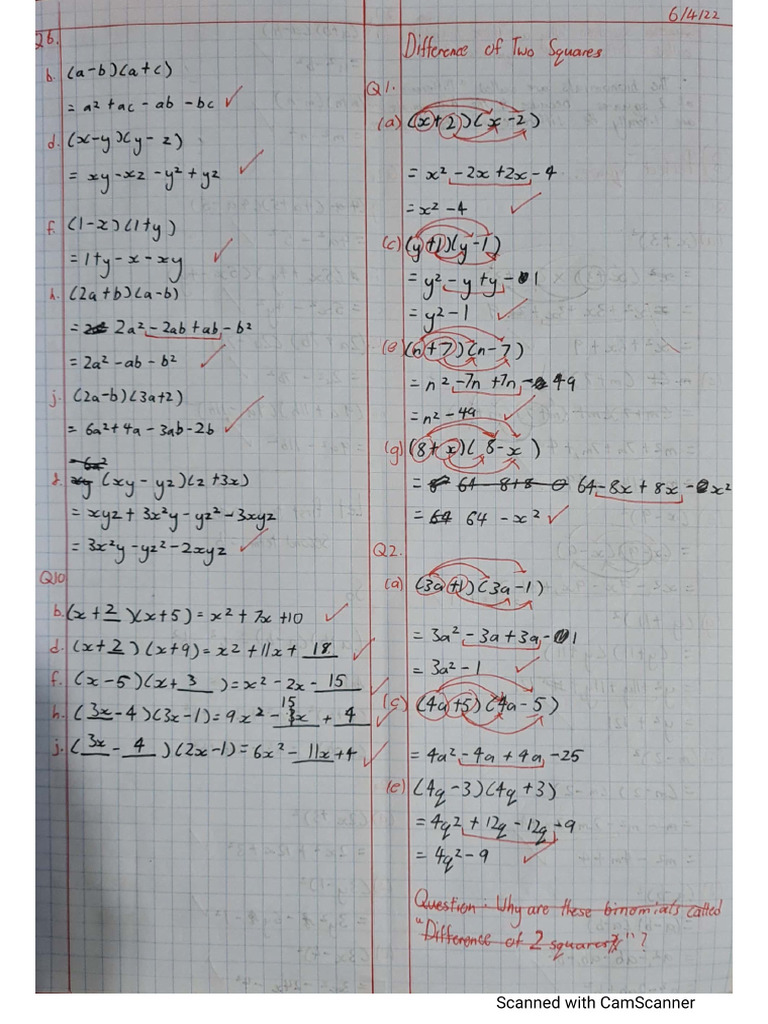 6/4/22
Q6.
b. (a-b)(a+c)
= a² + ac - ab - bc ✓
d. (x-y)(y-z)
= xy - xz - y² + yz ✓
f. (1-x)(1+y)
= 1+y - x - xy ✓
h. (2a+b)(a-b)
= 2a² - 2ab + ab - b²
= 2a² - ab - b² ✓
j. (2a-b)(3a+2)
= 6a² + 4a - 3ab - 2b ✓
(xy - yz)(z + 3x)
= xyz + 3x²y - yz² - 3xyz
= 3x²y - yz² - 2xyz ✓
Q10
b. (x + 2)(x+5) = x² + 7x + 10 ✓
d. (x + 2)(x+9) = x² + 11x + 18 ✓
f. (x-5)(x + 3) = x² - 2x - 15 ✓
h. (3x - 4)(3x-1) = 9x² - 15x + 4 ✓
j. (3x - 4)(2x-1) = 6x² - 11x + 4 ✓
Difference of Two Squares
Q1.
(a) (x+2)(x-2)
= x² - 2x + 2x - 4
= x² - 4 ✓
(c) (y+1)(y-1)
= y² - y + y - 1
= y² - 1 ✓
(e) (n+7)(n-7)
= n² - 7n + 7n - 49
= n² - 49 ✓
(g) (8+x)(8-x)
= 64 - 8x + 8x - x²
= 64 - x² ✓
Q2.
(a) (3a+1)(3a-1)
= 3a² - 3a + 3a - 1
= 3a² - 1 ✓
(c) (4a+5)(4a-5)
= 4a² - 4a + 4a - 25
(e) (4q-3)(4q+3)
= 4q² + 12q - 12q + 9
= 4q² - 9 ✓
Question: Why are these binomials called
"Difference of 2 squares"?
Scanned with CamScanner